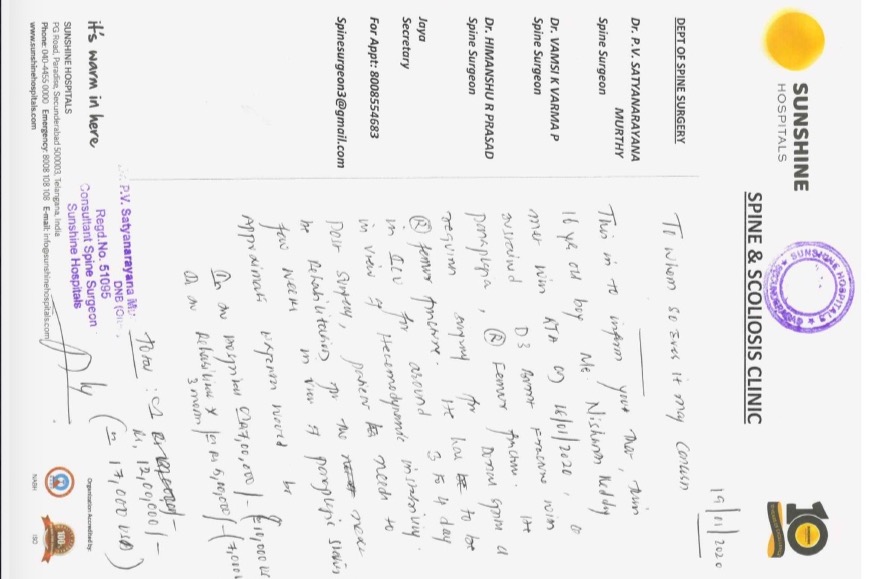 SUNSHINE
HOSPITALS
SPINE & SCOLIOSIS CLINIC
SUNSHINE HOSPITALS
10
19/01/2020
DEPT OF SPINE SURGERY
Dr. P.V. SATYANARAYANA
MURTHY
Spine Surgeon
Dr. VAMSI K VARMA P
Spine Surgeon
Dr. HIMANSHU R PRASAD
Spine Surgeon
Jaya
Secretary
For Appt: 8008554683
Spinesurgeon3@gmail.com
To whom so ever it may concern
This is to inform you that, this
16 yr old boy Mr. Nishanth Reddy
met with RTA on 16/01/2020,
sustained D3 fracture with
paraplegia, (R) Femur fracture. He
requires surgery for Dorsal spine &
(R) femur fracture. He has to be
in ICU for around 3 to 4 days
in view of Hemodynamic instability.
Post surgery, patient needs to
be Rehabilitation for the next
few weeks in view of paraplegic status
Approximate expenses would be
① In hospital 7,00,000/- 10,000 US
② Rehabilitation 5,00,000/- (7,000
3 month
Total :
Rs. 12,00,000/-
(= 17,000 USD)
P.V. Satyanarayana
DNB
Regd.No. 51095
Consultant Spine Surgeon
Sunshine Hospitals
it's warm in here
SUNSHINE HOSPITALS
PG Road, Paradise, Secunderabad 500003, Telangana, India
Phone: 040-4455 0000 Emergency: 8008 108 108 E-mail: info@sunshinehospitals.com
www.sunshinehospitals.com
Organisation Accredited by:
NABH
ISO